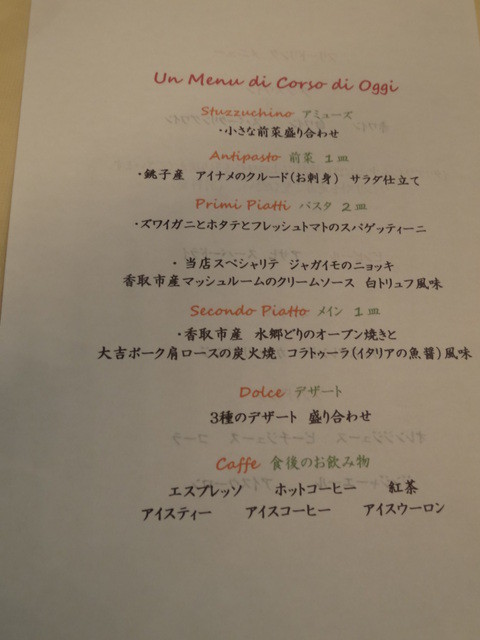 Un Menu di Corso di Oggi
Stuzzuchino アミューズ
・小さな前菜盛り合わせ
Antipasto 前菜 1皿
・銚子産 アイナメのクルード(お刺身) サラダ仕立て
Primi Piatti パスタ 2皿
・ズワイガニとホタテとフレッシュトマトのスパゲッティーニ
・当店スペシャリテ ジャガイモのニョッキ
香取市産マッシュルームのクリームソース 白トリュフ風味
Secondo Piatto メイン 1皿
・香取市産 水郷どりのオーブン焼きと
大吉ポーク肩ロースの炭火焼 コラトゥーラ(イタリアの魚醤)風味
Dolce デザート
3種のデザート 盛り合わせ
Caffe 食後のお飲み物
エスプレッソ ホットコーヒー 紅茶
アイスティー アイスコーヒー アイスウーロン